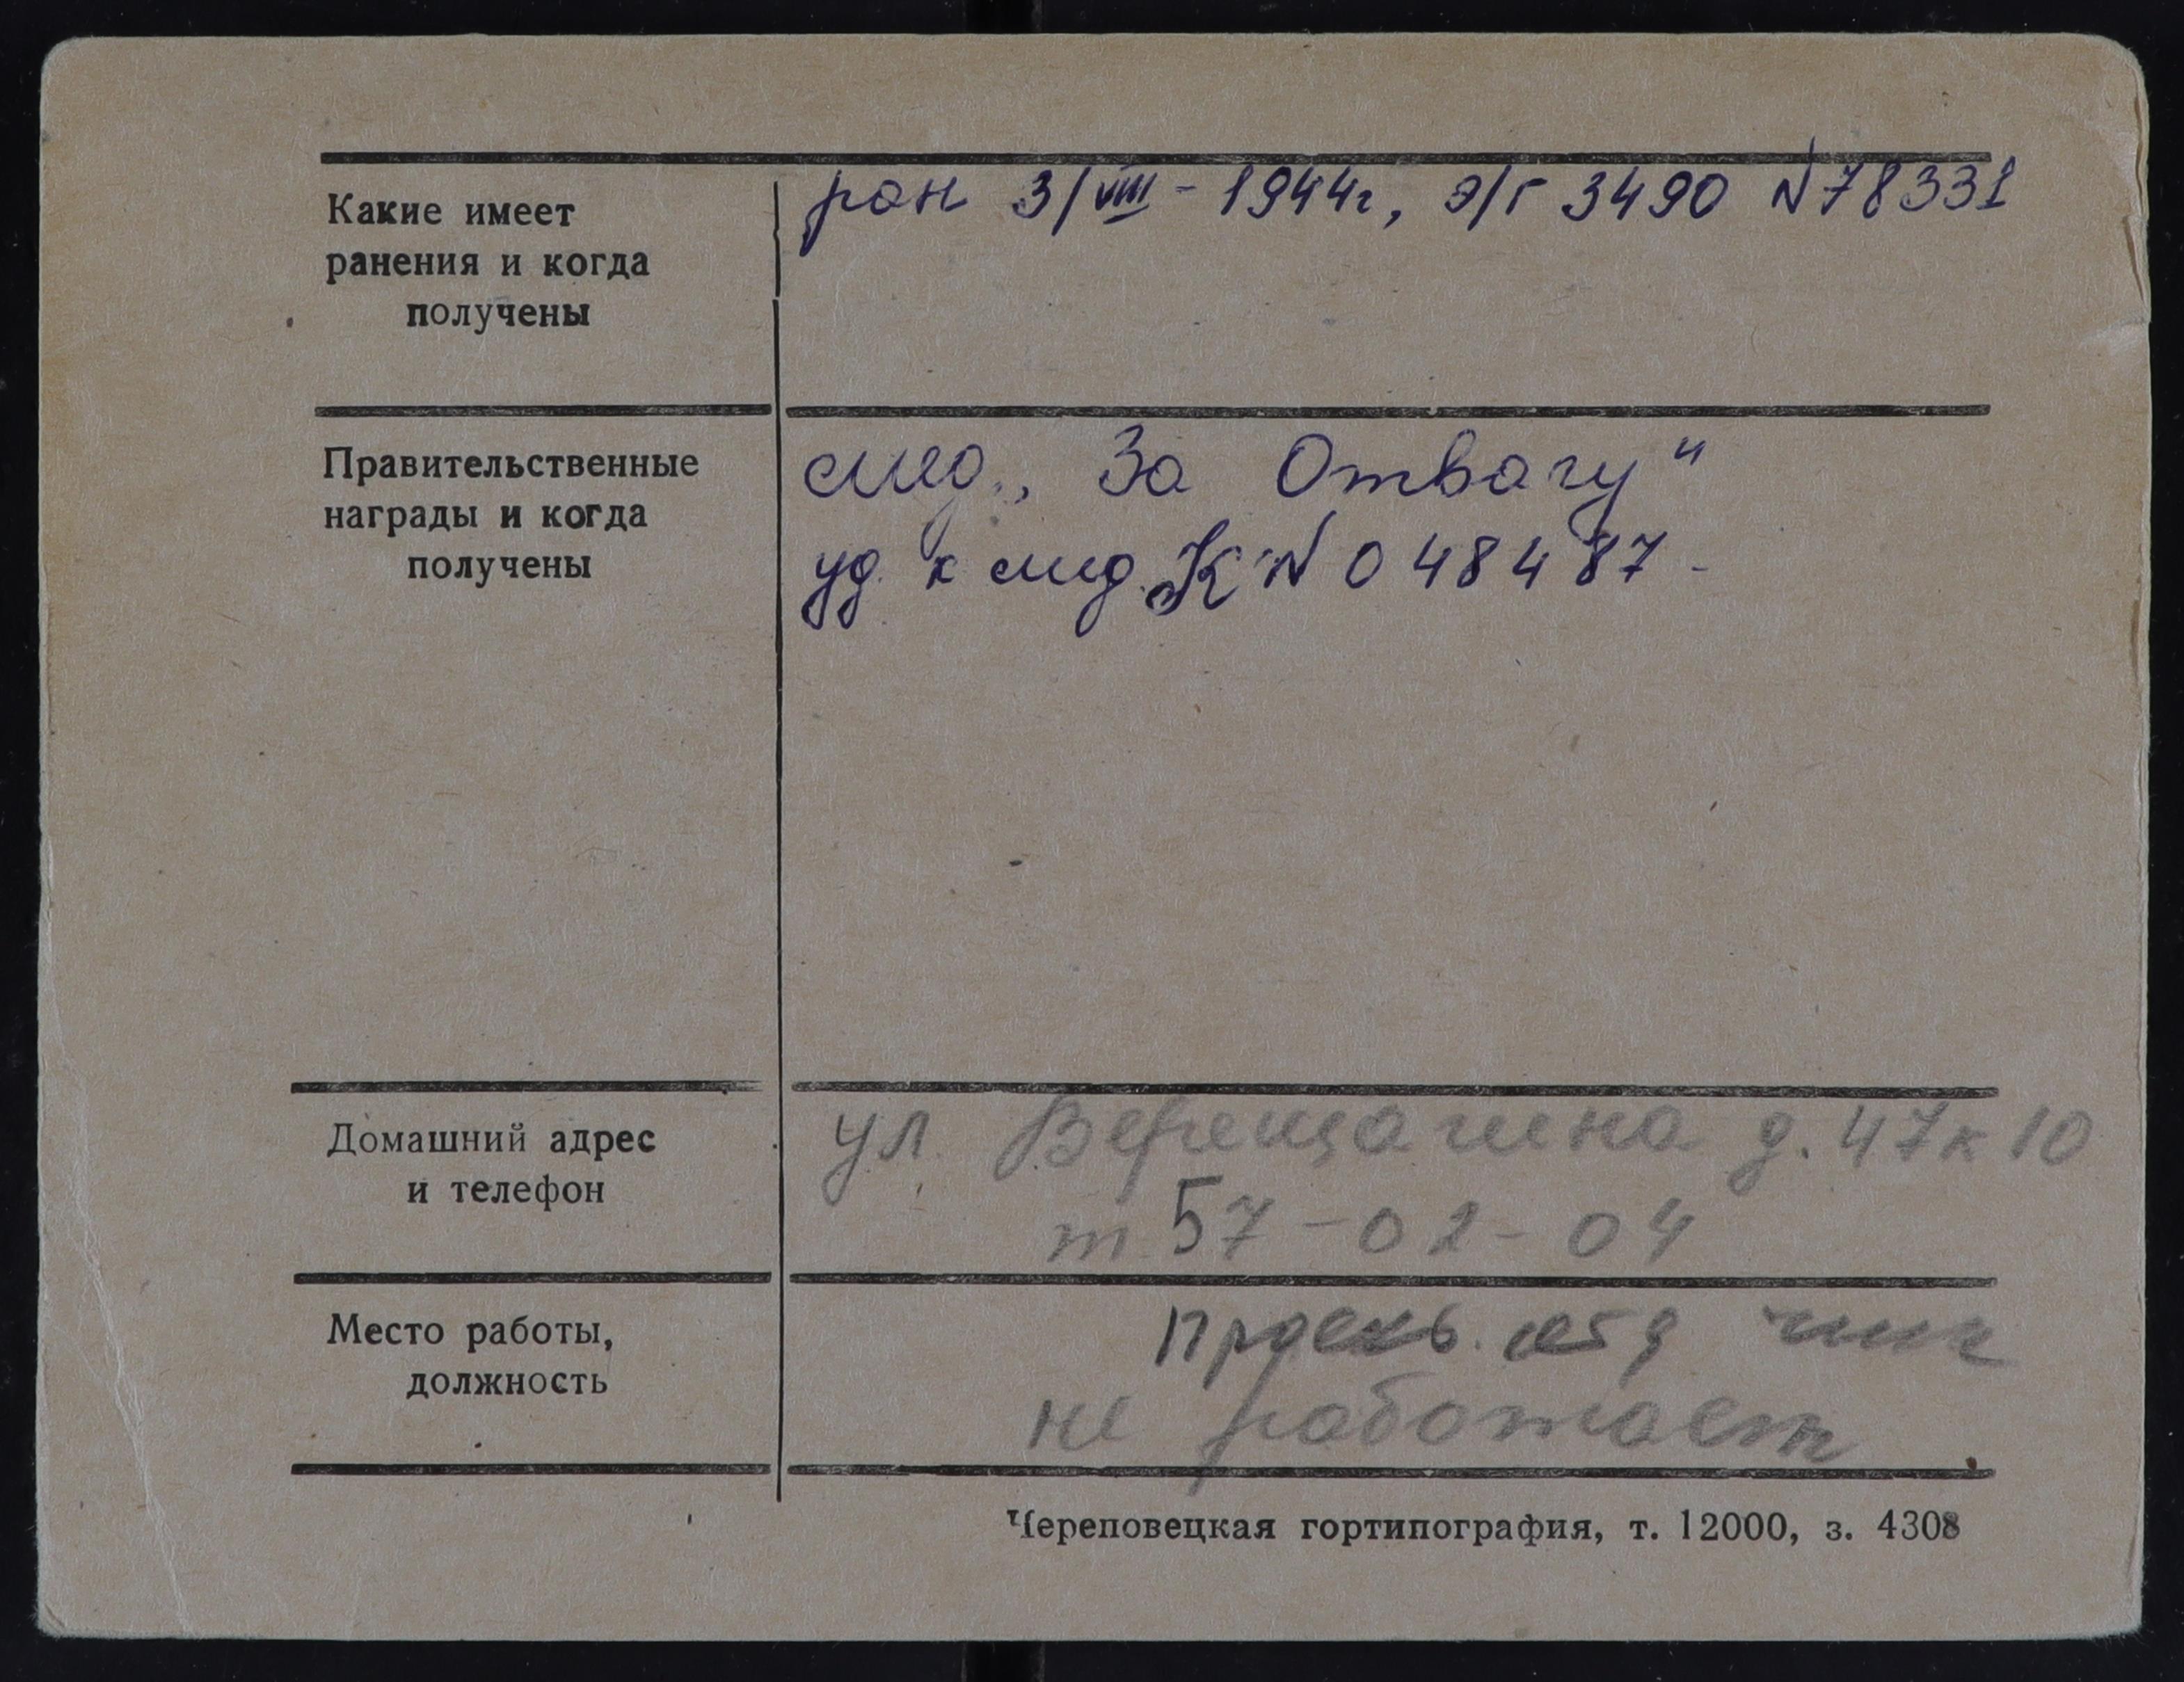 Какие имеет
ранения и когда
получены
ран 3/VIII - 1944г, э/г 3490 N 78331
Правительственные
награды и когда
получены
мед „За Отвагу“
уд. к мед. К N 048487 -
Домашний адрес
и телефон
ул. Верещагина д. 47 к 10
т. 57-02-04
Место работы,
должность
не работает
Череповецкая гортипография, т. 12000, з. 4308